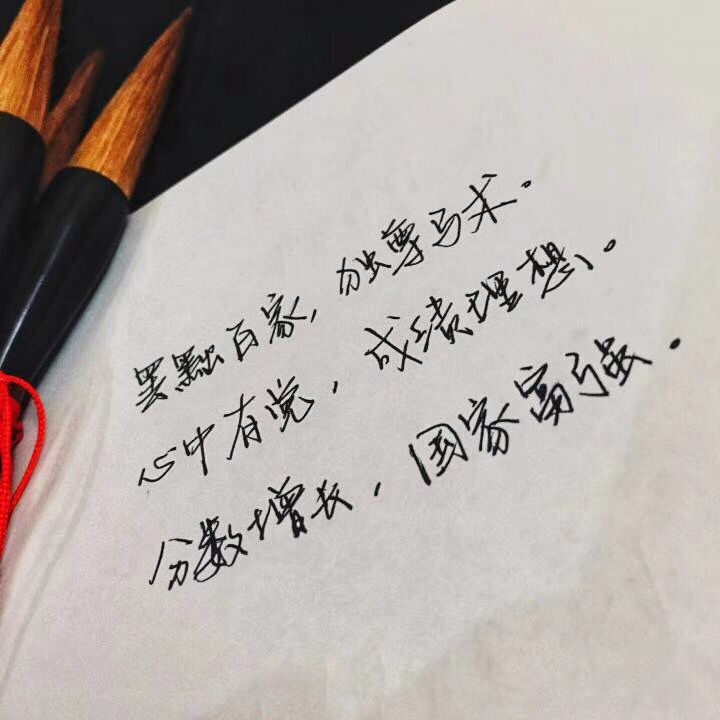 罢黜百家，独尊马术。
心中有党，成绩理想。
分数增长，国家富强。